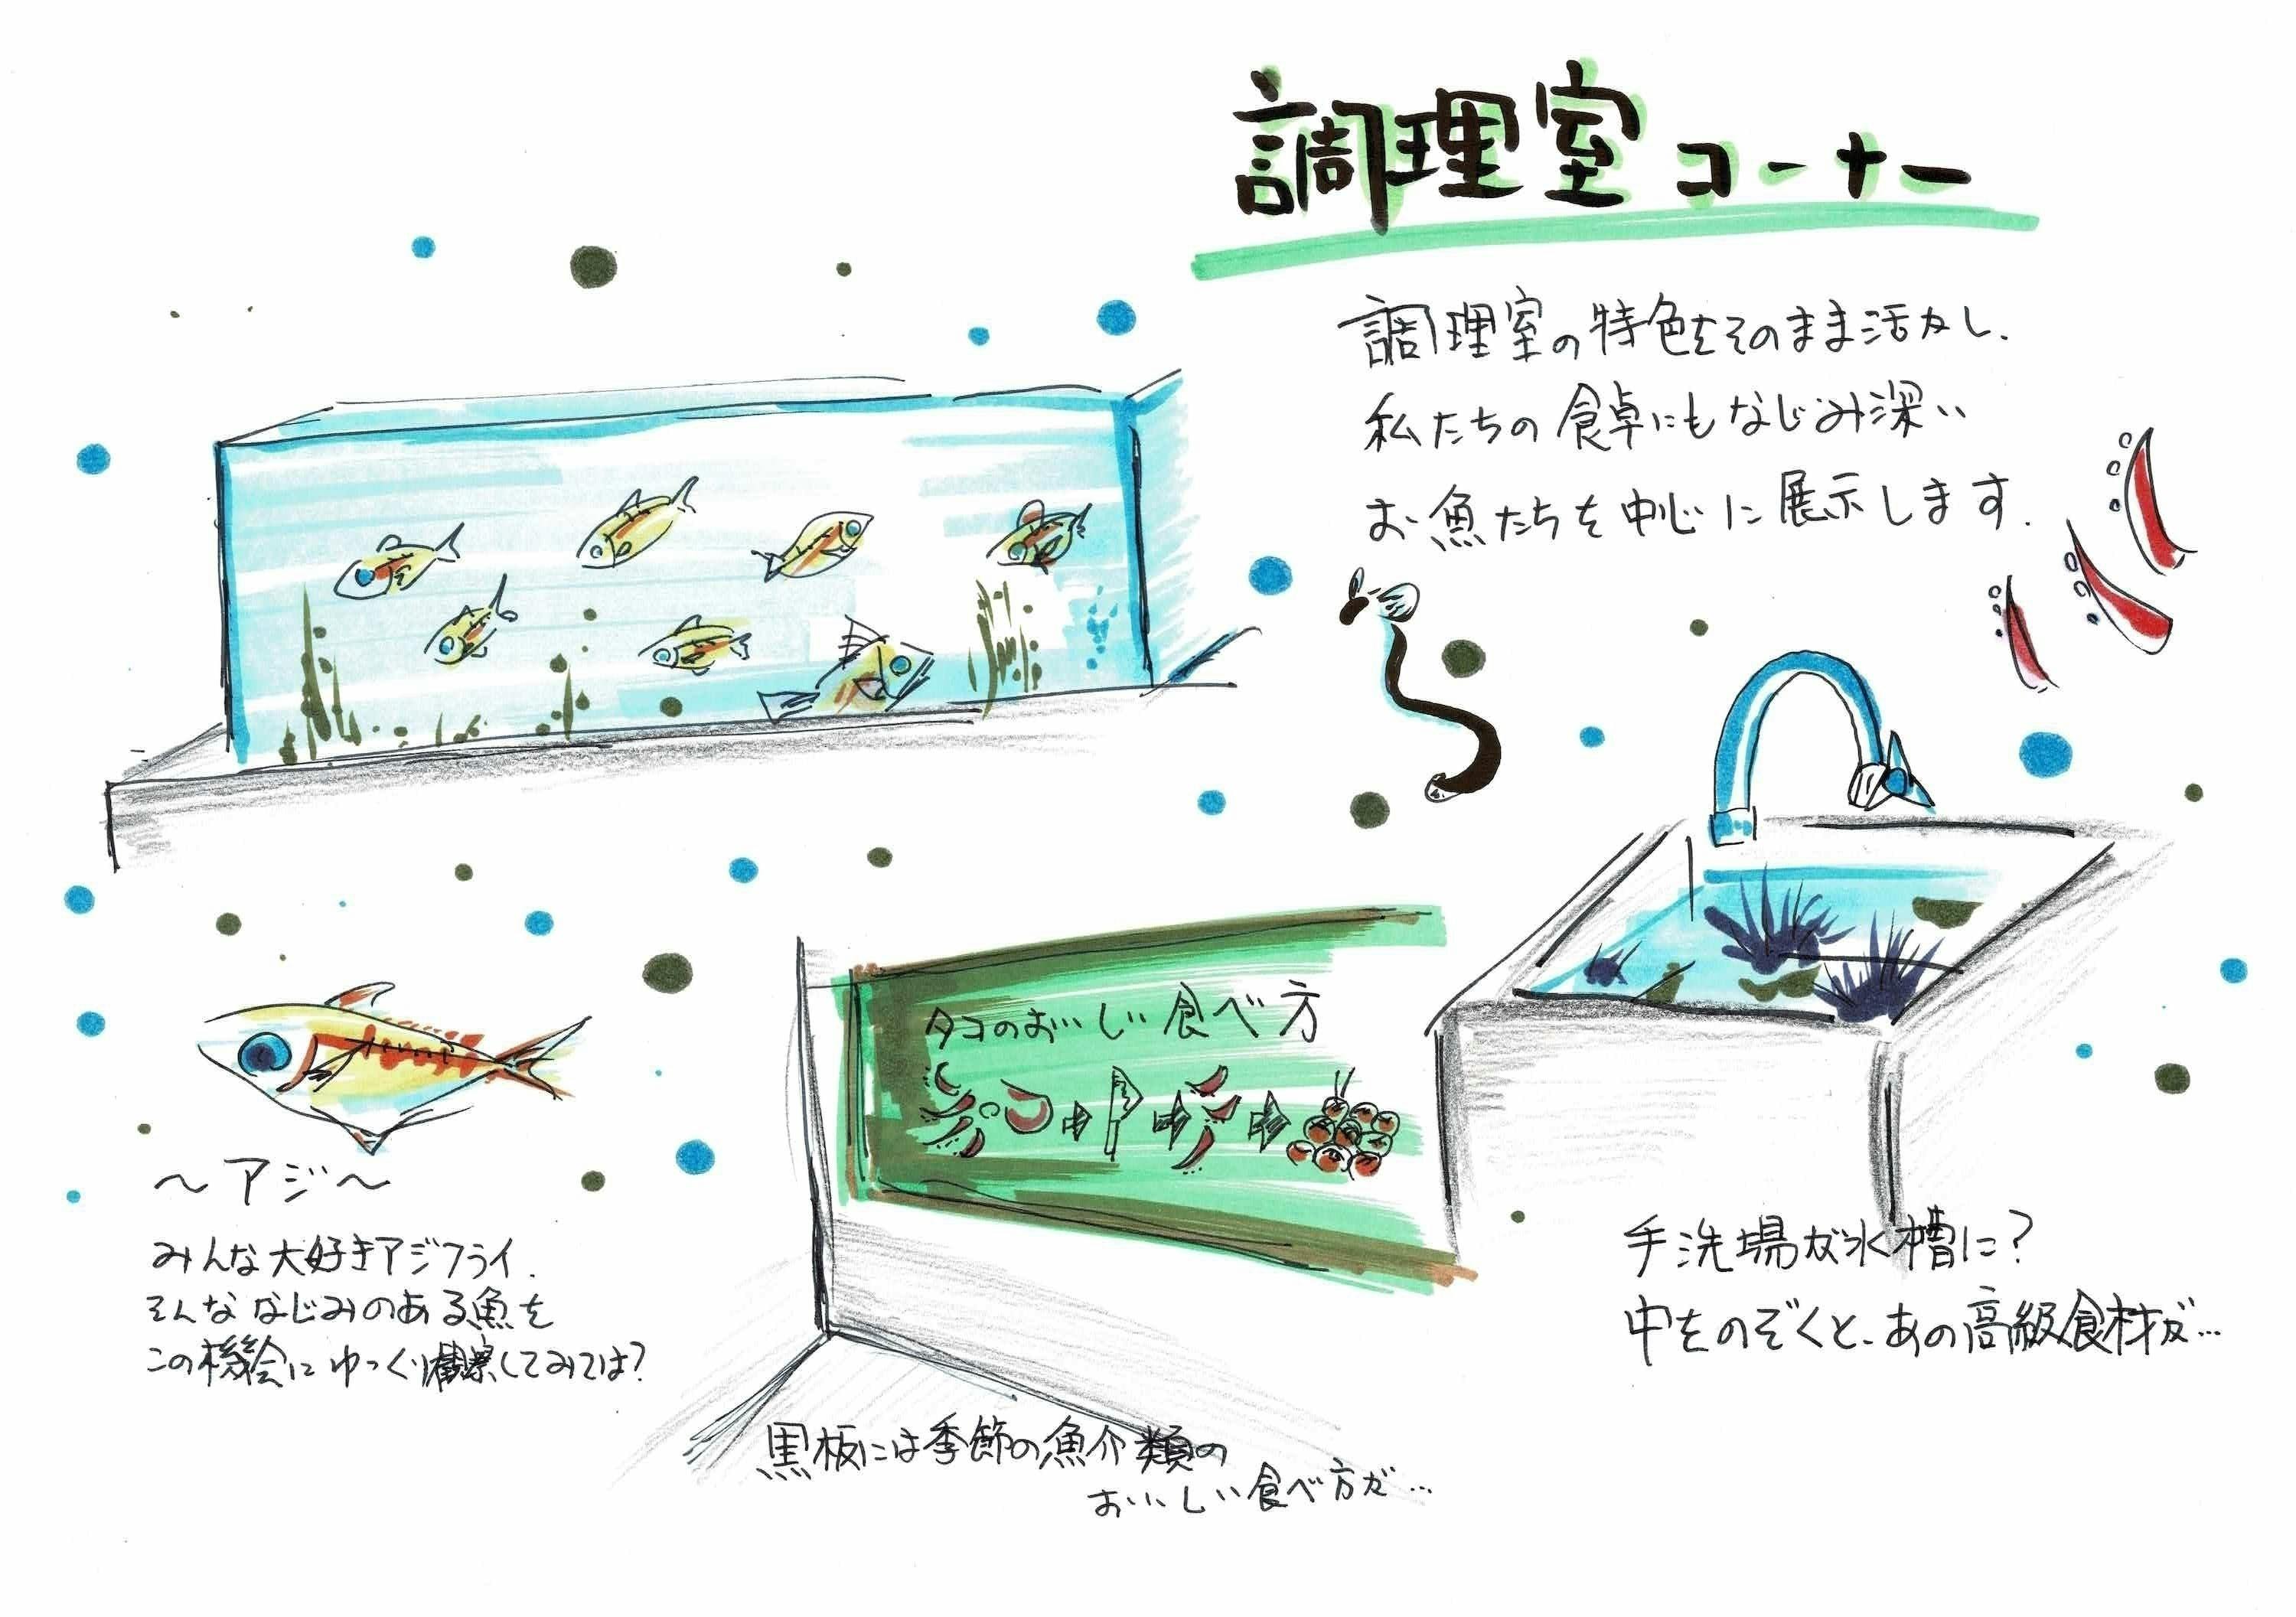 調理室コーナー
調理室の特色をそのまま活かし、
私たちの食卓にもなじみ深い
お魚たちを中心に展示します.
タコのおいしい食べ方
〜アジ〜
みんな大好きアジフライ.
そんななじみのある魚を
この機会にゆっくり観察してみては?
手洗場が水槽に?
中をのぞくと、あの高級食材が…
黒板には季節の魚介類の
おいしい食べ方が…